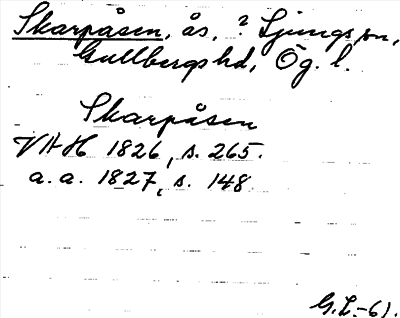 Skarpåsen, ås, ? Ljungs sn,
Gullbergs hd, Ög. l.
Skarpåsen
VAH 1826, s. 265.
a. a. 1827, s. 148
G.L. -61.